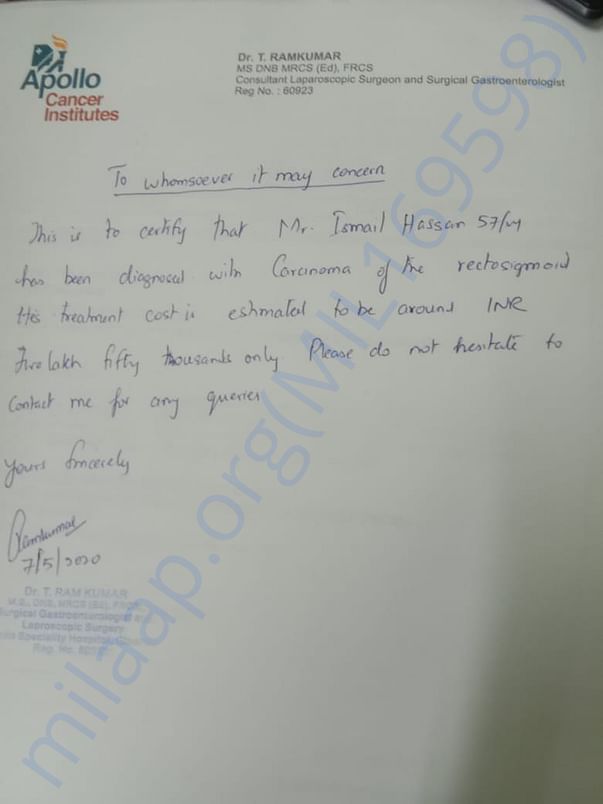 Apollo
Cancer
Institutes
Dr. T. RAMKUMAR
MS DNB MRCS (Ed), FRCS
Consultant Laparoscopic Surgeon and Surgical Gastroenterologist
Reg No. : 60923
To whomsoever it may concern
This is to certify that Mr. Ismail Hassan 57/M
has been diagnosed with Carcinoma of the rectosigmoid
His treatment cost is estimated to be around INR
lakh fifty thousands only Please do not hesitate to
Contact me for any queries
Yours Sincerely
Ramkumar
7/5/2020
Dr. T. RAM KUMAR
M.S., DNB, MRCS (Ed), FRCS
Surgical Gastroenterologist and
Laproscopic Surgery
Speciality Hospital
Reg. No.
milaap.org(MIL169598)